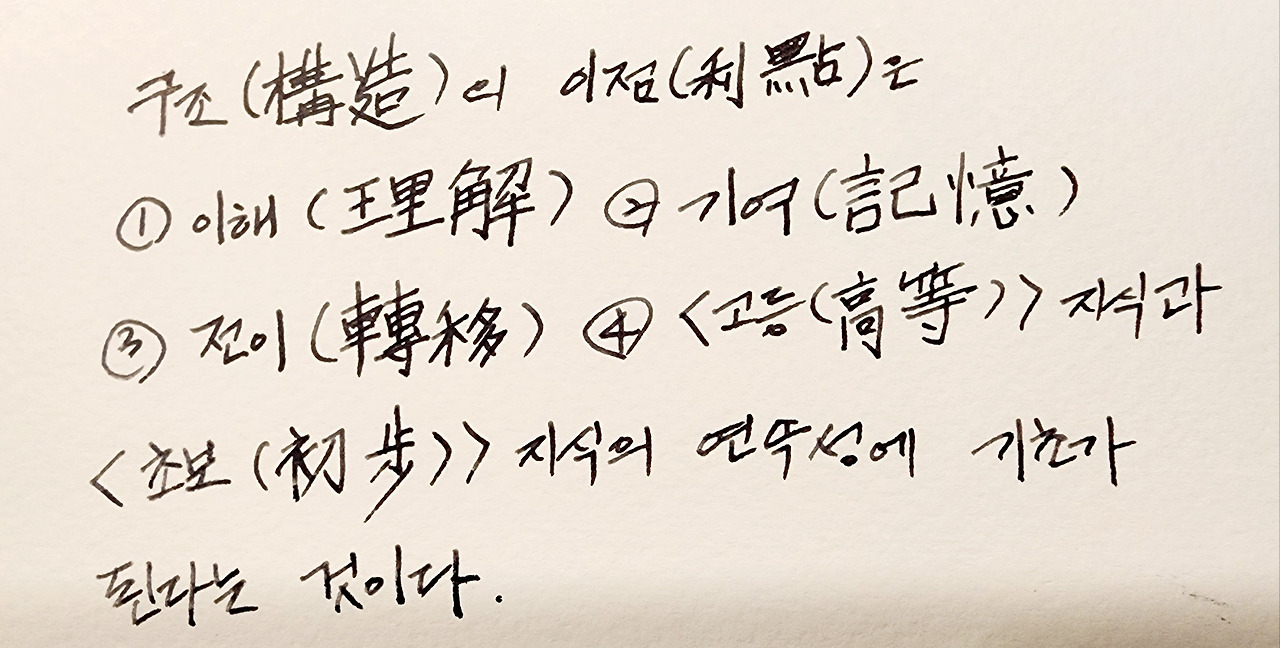 구조(構造)의 이점(利點)은
① 이해(理解) ② 기억(記憶)
③ 전이(轉移) ④ <고등(高等)> 지식과
<초보(初步)> 지식의 연속성에 기초가
된다는 것이다.